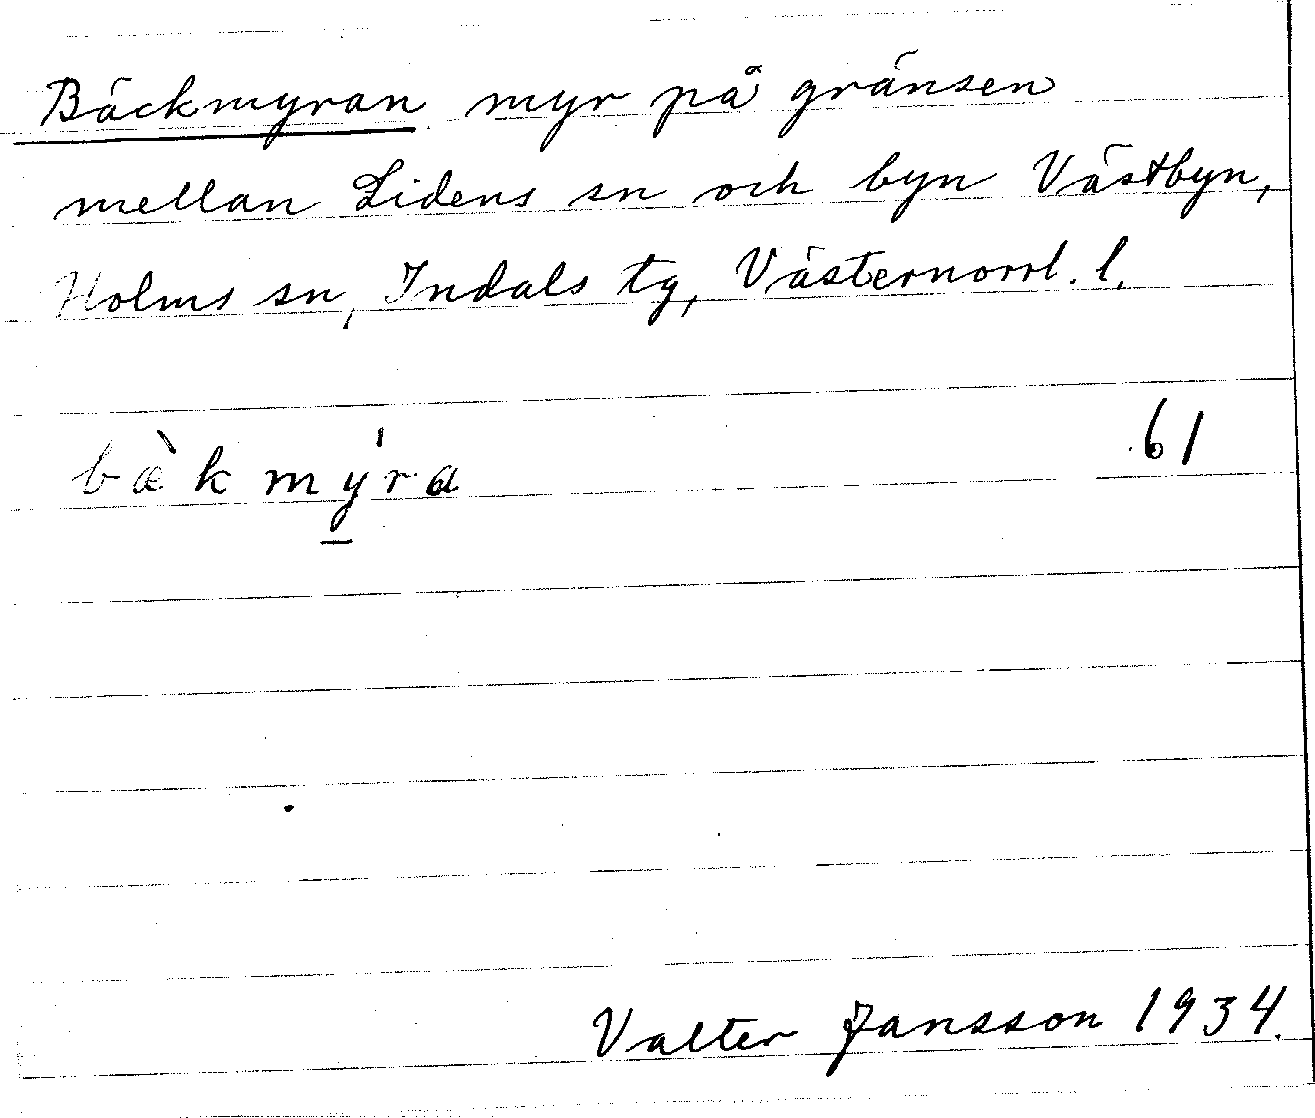 Bäckmyran myr på gränsen
mellan Lidens sn och byn Västbyn,
Holms sn, Indals tg, Västernorrl. l.
bæ̀kmýra 61
Valter Jansson 1934.